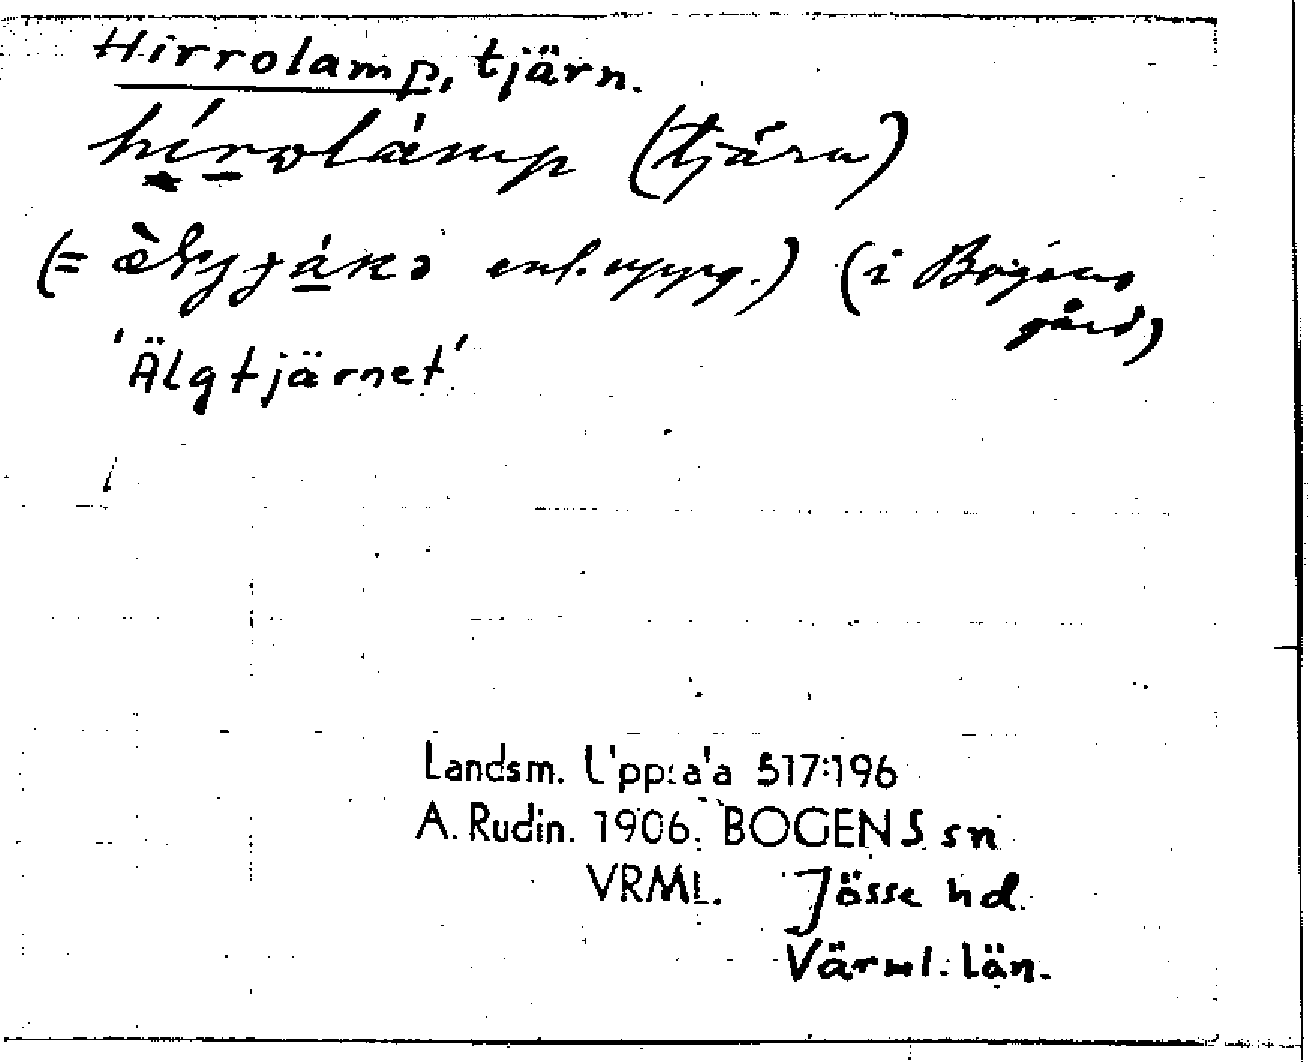 Hirrolamp, tjärn.
hírolámp (tjärn)
(= enl. uppg.) (i Bogens
gård)
'Älgtjärnet'
Landsm. Uppsala 517:196
A. Rudin. 1906. BOGENS sn
VRML. Jösse hd.
Värml. län.